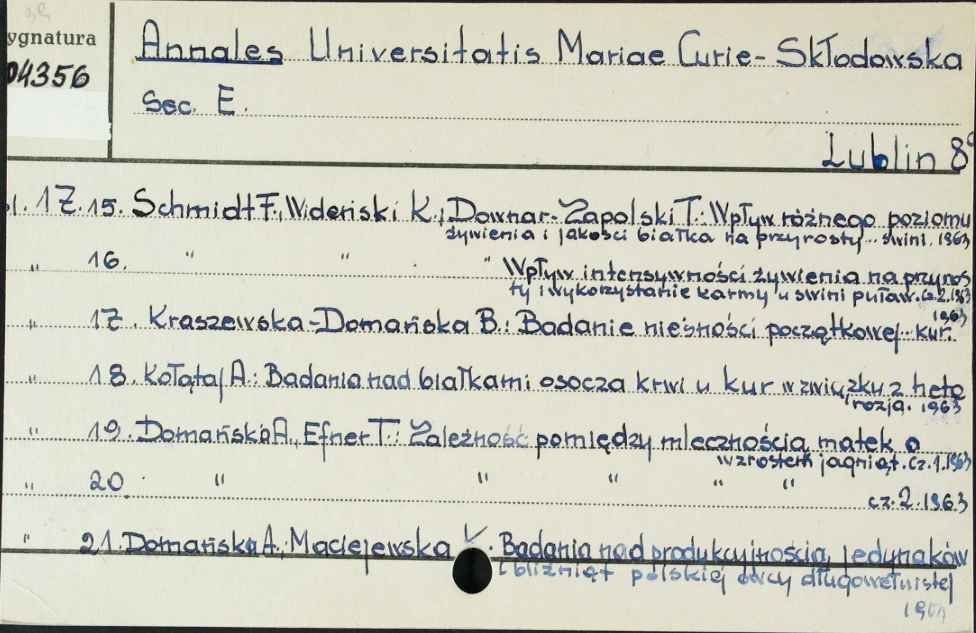 ygnatura
04356
Annales Universitatis Mariae Curie-Skłodowska
Sec. E.
Lublin 8°
17. 15. Schmidt F., Wideński K., Downar-Zapolski T.: Wpływ różnego poziomu
żywienia i jakości białka na przyrosty .. świni. 1963
" 16. " " " Wpływ intensywności żywienia na przyros
ty i wykorzystanie karmy u świni puław. cz.2. 1963
" 17. Kraszewska-Domańska B.: Badanie nieśności początkowej .. kur.
1963
" 18. Kołątaj A.: Badania nad białkami osocza krwi u kur w związku z hete
rozją. 1963
" 19. Domańska A., Efner T.: Zależność pomiędzy mlecznością matek a
wzrostem jagniąt. cz.1. 1963
" 20. " " " " " cz.2. 1963
" 21. Domańska A., Maciejewska Badania nad produkcyjnością jedynaków
i bliźniąt polskiej owcy długowełnistej